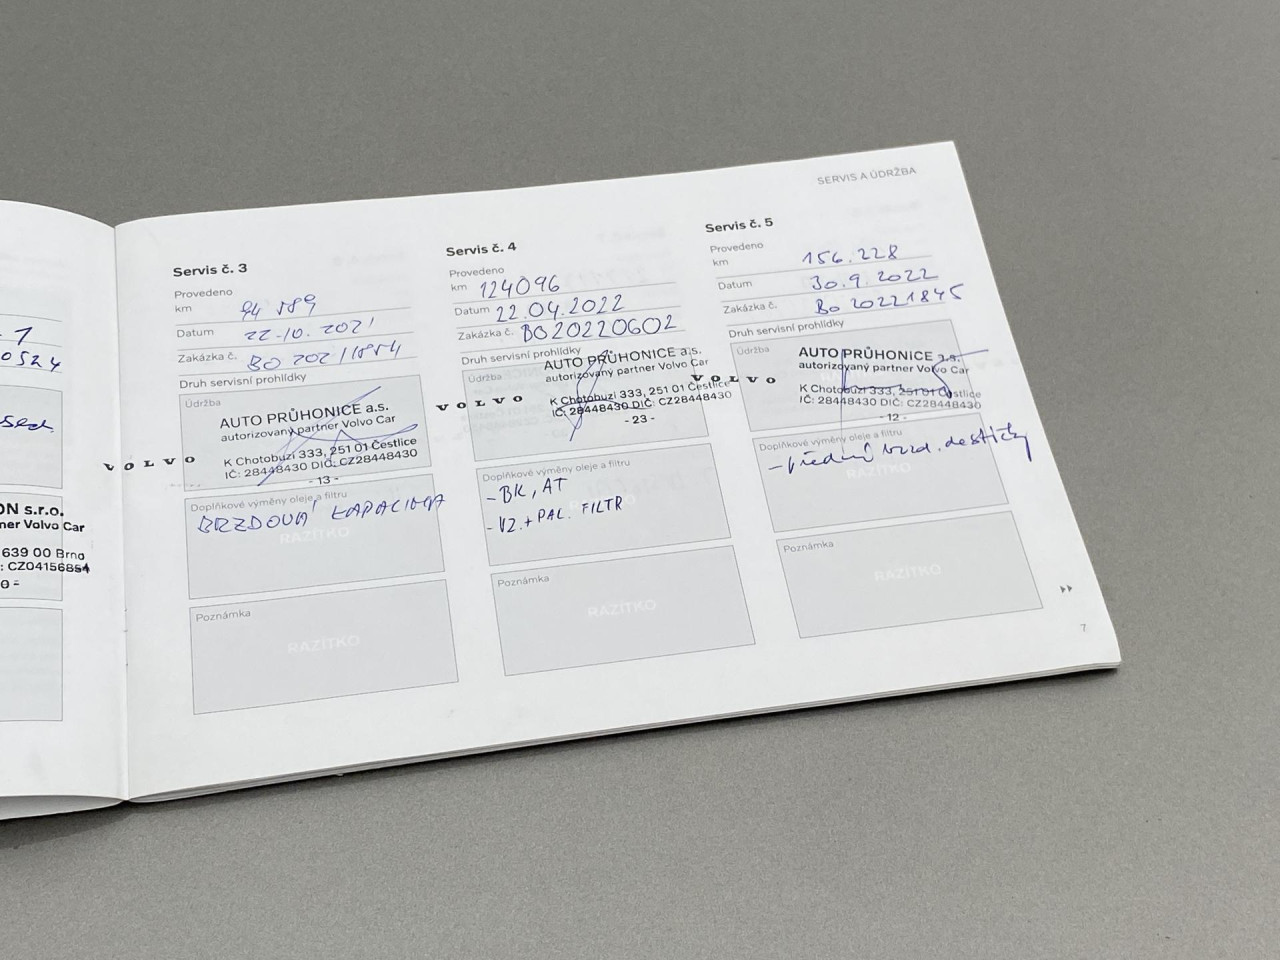 SERVIS A ÚDRŽBA
0524
ON s.r.o.
tner Volvo Car
639 00 Brno
: CZ04156854
Servis č. 3
Provedeno
km 94 589
Datum 22.10.2021
Zakázka č. BO 20211854
Druh servisní prohlídky
Údržba
AUTO PRŮHONICE a.s.
autorizovaný partner Volvo Car
VOLVO
K Chotobuzi 333, 251 01 Čestlice
IČ: 28448430 DIČ: CZ28448430
- 13 -
Doplňkové výměny oleje a filtru
BRZDOVÁ KAPALINA
RAZÍTKO
Poznámka
RAZÍTKO
Servis č. 4
Provedeno
km 124096
Datum 22.04.2022
Zakázka č. BO20220602
Druh servisní prohlídky
Údržba
AUTO PRŮHONICE a.s.
autorizovaný partner Volvo Car
VOLVO
K Chotobuzi 333, 251 01 Čestlice
IČ: 28448430 DIČ: CZ28448430
- 23 -
Doplňkové výměny oleje a filtru
- BK, AT
- VZ. + PAL. FILTR
Poznámka
RAZÍTKO
Servis č. 5
Provedeno
km 156.228
Datum 30.9.2022
Zakázka č. Bo 20221845
Druh servisní prohlídky
Údržba
AUTO PRŮHONICE a.s.
autorizovaný partner Volvo Car
VOLVO
K Chotobuzi 333, 251 01 Čestlice
IČ: 28448430 DIČ: CZ28448430
- 12 -
Doplňkové výměny oleje a filtru
- přední brzd. destičky
RAZÍTKO
Poznámka
RAZÍTKO
7